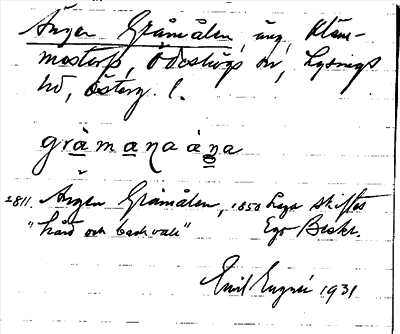 Ängen Gråmålen, äng, Kläm-
mestorp, Ödeshögs sn, Lysings
hd, Österg. l.
gràmaɳaáɳa
1811. Ängen Gråmålen, 1850 Laga skiftes
"hård och backvall" Ego Beskr.
Emil 1931